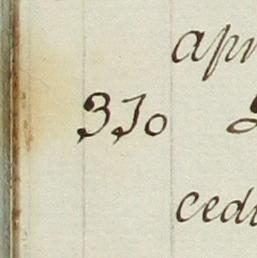 apr
350
cedu